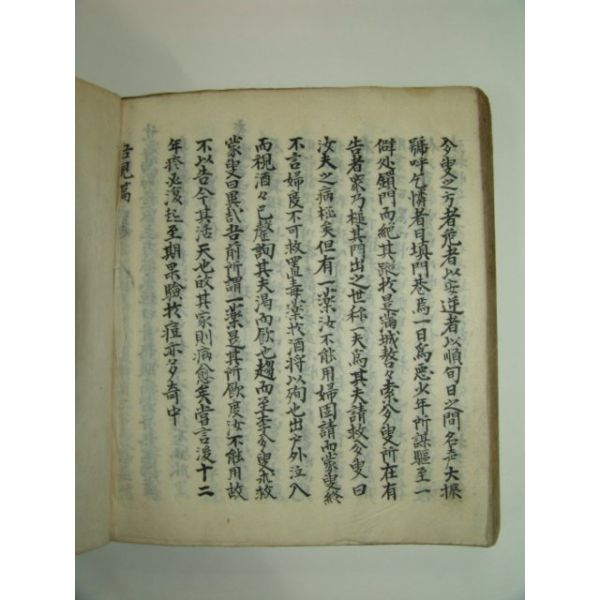 兮叟之方者危者以安逆者以順旬日之間名声大振
號呼乞憐者日填門巷焉一日爲惡少年所謀驅至一
僻処鎖門而絶其蹤於是滿城嗸々索兮叟所在有
告者衆乃槌其門出之世称一夫爲其夫請救兮叟曰
汝夫之病極矣但有一藥汝不能用婦固請而蒙叟終
不言婦度不可救置毒藥於酒將以殉也出戶外泣入
而視酒々已罄詢其夫渴而飮也趨而至李兮叟求救
蒙叟曰異哉吾前所謂一藥是其所飮度汝不能用故
不以告今其活天也故其家則病愈矣嘗言後十二
年疹必復起至期果驗於痘亦多奇中